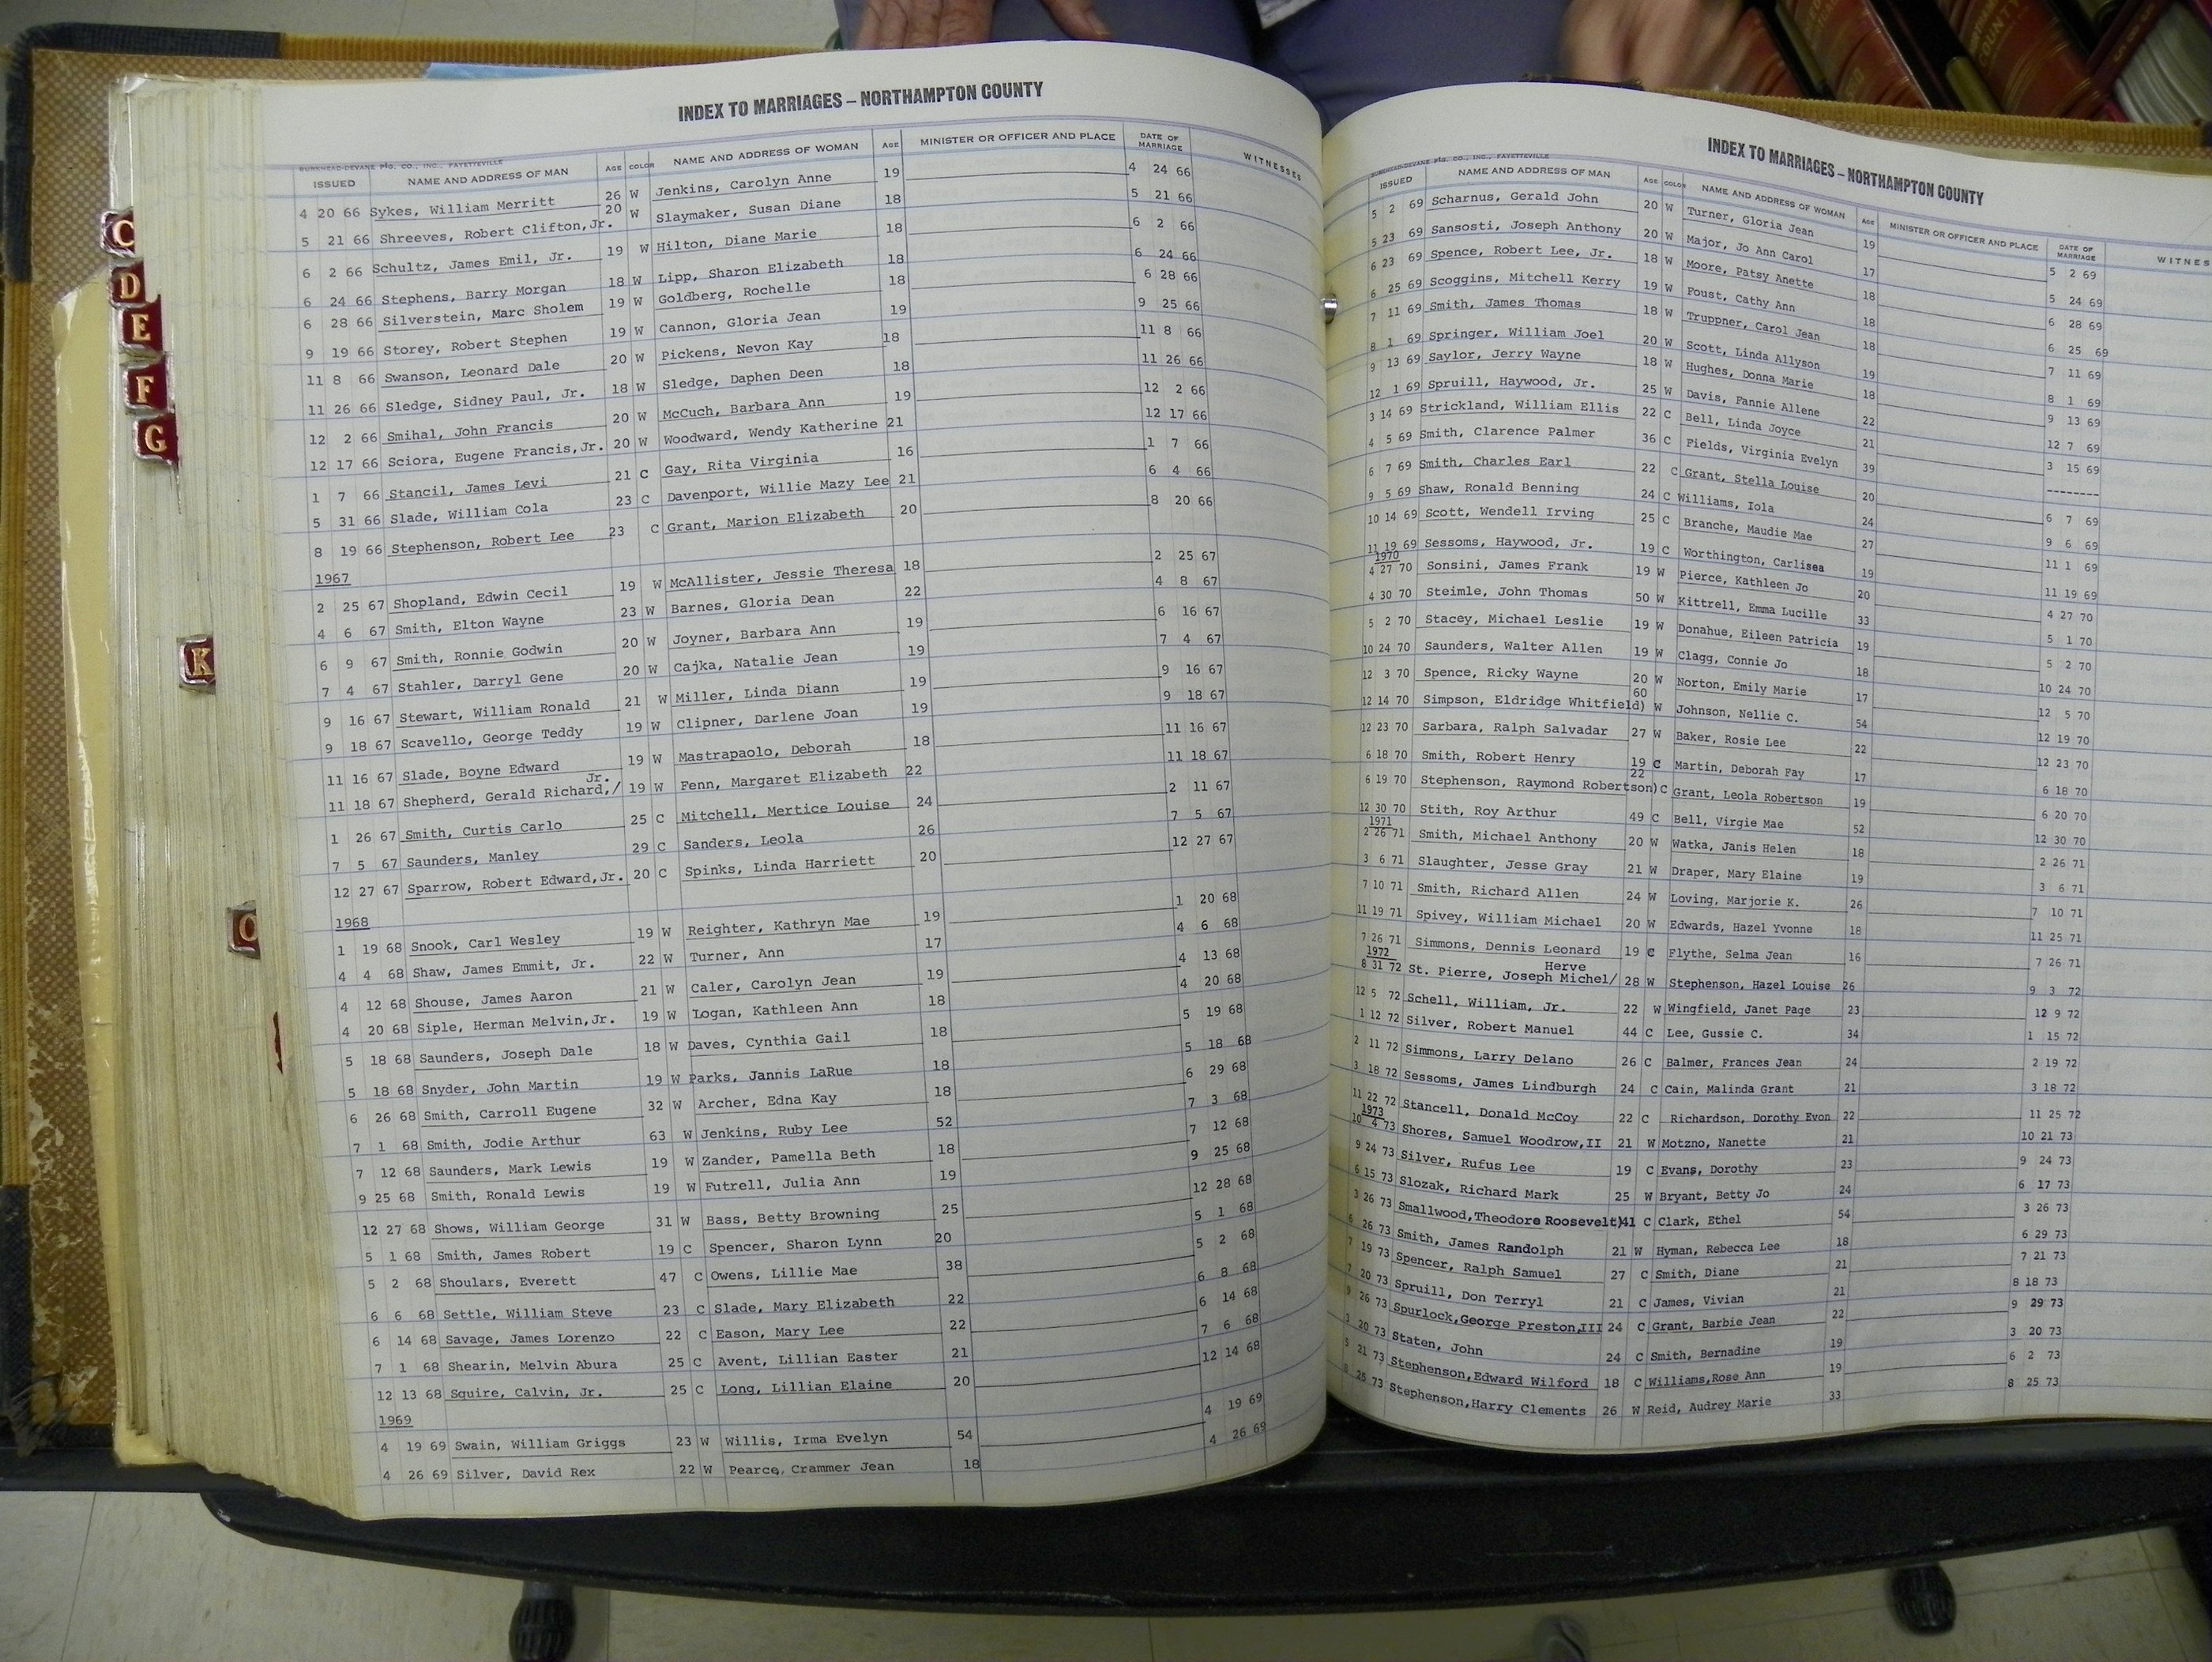 INDEX TO MARRIAGES – NORTHAMPTON COUNTY
BURKHEAD-DEVANE PTG. CO., INC., FAYETTEVILLE
ISSUED NAME AND ADDRESS OF MAN AGE COLOR NAME AND ADDRESS OF WOMAN AGE MINISTER OR OFFICER AND PLACE DATE OF MARRIAGE WITNESSES
4 20 66 Sykes, William Merritt 26 W Jenkins, Carolyn Anne 19 4 24 66
5 21 66 Shreeves, Robert Clifton, Jr. 20 W Slaymaker, Susan Diane 18 5 21 66
6 2 66 Schultz, James Emil, Jr. 19 W Hilton, Diane Marie 18 6 2 66
6 24 66 Stephens, Barry Morgan 18 W Lipp, Sharon Elizabeth 18 6 24 66
6 28 66 Silverstein, Marc Sholem 19 W Goldberg, Rochelle 18 6 28 66
9 19 66 Storey, Robert Stephen 19 W Cannon, Gloria Jean 19 9 25 66
11 8 66 Swanson, Leonard Dale 20 W Pickens, Nevon Kay 18 11 8 66
11 26 66 Sledge, Sidney Paul, Jr. 18 W Sledge, Daphen Deen 18 11 26 66
12 2 66 Smihal, John Francis 20 W McCuch, Barbara Ann 19 12 2 66
12 17 66 Sciora, Eugene Francis, Jr. 20 W Woodward, Wendy Katherine 21 12 17 66
1 7 66 Stancil, James Levi 21 C Gay, Rita Virginia 16 1 7 66
5 31 66 Slade, William Cola 23 C Davenport, Willie Mazy Lee 21 6 4 66
8 19 66 Stephenson, Robert Lee 23 C Grant, Marion Elizabeth 20 8 20 66
1967
2 25 67 Shopland, Edwin Cecil 19 W McAllister, Jessie Theresa 18 2 25 67
4 6 67 Smith, Elton Wayne 23 W Barnes, Gloria Dean 22 4 8 67
6 9 67 Smith, Ronnie Godwin 20 W Joyner, Barbara Ann 19 6 16 67
7 4 67 Stahler, Darryl Gene 20 W Cajka, Natalie Jean 19 7 4 67
9 16 67 Stewart, William Ronald 21 W Miller, Linda Diann 19 9 16 67
9 18 67 Scavello, George Teddy 19 W Clipner, Darlene Joan 19 9 18 67
11 16 67 Slade, Boyne Edward 19 W Mastrapaolo, Deborah 18 11 16 67
Jr.
11 18 67 Shepherd, Gerald Richard,/ 19 W Fenn, Margaret Elizabeth 22 11 18 67
1 26 67 Smith, Curtis Carlo 25 C Mitchell, Mertice Louise 24 2 11 67
7 5 67 Saunders, Manley 29 C Sanders, Leola 26 7 5 67
12 27 67 Sparrow, Robert Edward, Jr. 20 C Spinks, Linda Harriett 20 12 27 67
1968
1 19 68 Snook, Carl Wesley 19 W Reighter, Kathryn Mae 19 1 20 68
4 4 68 Shaw, James Emmit, Jr. 22 W Turner, Ann 17 4 6 68
4 12 68 Shouse, James Aaron 21 W Caler, Carolyn Jean 19 4 13 68
4 20 68 Siple, Herman Melvin, Jr. 19 W Logan, Kathleen Ann 18 4 20 68
5 18 68 Saunders, Joseph Dale 18 W Daves, Cynthia Gail 18 5 19 68
5 18 68 Snyder, John Martin 19 W Parks, Jannis LaRue 18 5 18 68
6 26 68 Smith, Carroll Eugene 32 W Archer, Edna Kay 18 6 29 68
7 1 68 Smith, Jodie Arthur 63 W Jenkins, Ruby Lee 52 7 3 68
7 12 68 Saunders, Mark Lewis 19 W Zander, Pamella Beth 18 7 12 68
9 25 68 Smith, Ronald Lewis 19 W Futrell, Julia Ann 19 9 25 68
12 27 68 Shows, William George 31 W Bass, Betty Browning 25 12 28 68
5 1 68 Smith, James Robert 19 C Spencer, Sharon Lynn 20 5 1 68
5 2 68 Shoulars, Everett 47 C Owens, Lillie Mae 38 5 2 68
6 6 68 Settle, William Steve 23 C Slade, Mary Elizabeth 22 6 8 68
6 14 68 Savage, James Lorenzo 22 C Eason, Mary Lee 22 6 14 68
7 1 68 Shearin, Melvin Abura 25 C Avent, Lillian Easter 21 7 6 68
12 13 68 Squire, Calvin, Jr. 25 C Long, Lillian Elaine 20 12 14 68
1969
4 19 69 Swain, William Griggs 23 W Willis, Irma Evelyn 54 4 19 69
4 26 69 Silver, David Rex 22 W Pearce, Crammer Jean 18 4 26 69
C
D
E
F
G
K
INDEX TO MARRIAGES – NORTHAMPTON COUNTY
BURKHEAD-DEVANE PTG. CO., INC., FAYETTEVILLE
ISSUED NAME AND ADDRESS OF MAN AGE COLOR NAME AND ADDRESS OF WOMAN AGE MINISTER OR OFFICER AND PLACE DATE OF MARRIAGE
5 2 69 Scharnus, Gerald John 20 W Turner, Gloria Jean 19 5 2 69
5 23 69 Sansosti, Joseph Anthony 20 W Major, Jo Ann Carol 17 5 24 69
6 23 69 Spence, Robert Lee, Jr. 18 W Moore, Patsy Anette 18 6 28 69
6 25 69 Scoggins, Mitchell Kerry 19 W Foust, Cathy Ann 18 6 25 69
7 11 69 Smith, James Thomas 18 W Truppner, Carol Jean 18 7 11 69
8 1 69 Springer, William Joel 20 W Scott, Linda Allyson 19 8 1 69
9 13 69 Saylor, Jerry Wayne 18 W Hughes, Donna Marie 18 9 13 69
12 1 69 Spruill, Haywood, Jr. 25 W Davis, Fannie Allene 22 12 7 69
3 14 69 Strickland, William Ellis 22 C Bell, Linda Joyce 21 3 15 69
4 5 69 Smith, Clarence Palmer 36 C Fields, Virginia Evelyn 39 --------
6 7 69 Smith, Charles Earl 22 C Grant, Stella Louise 20 6 7 69
9 5 69 Shaw, Ronald Benning 24 C Williams, Iola 24 9 6 69
10 14 69 Scott, Wendell Irving 25 C Branche, Maudie Mae 27 11 1 69
11 19 69 Sessoms, Haywood, Jr. 19 C Worthington, Carlisea 19 11 19 69
1970
4 27 70 Sonsini, James Frank 19 W Pierce, Kathleen Jo 20 4 27 70
4 30 70 Steimle, John Thomas 50 W Kittrell, Emma Lucille 33 5 1 70
5 2 70 Stacey, Michael Leslie 19 W Donahue, Eileen Patricia 19 5 2 70
10 24 70 Saunders, Walter Allen 19 W Clagg, Connie Jo 18 10 24 70
12 3 70 Spence, Ricky Wayne 20 W Norton, Emily Marie 17 12 5 70
12 14 70 Simpson, Eldridge Whitfield) 60 W Johnson, Nellie C. 54 12 19 70
12 23 70 Sarbara, Ralph Salvadar 27 W Baker, Rosie Lee 22 12 23 70
6 18 70 Smith, Robert Henry 19 C Martin, Deborah Fay 17 6 18 70
6 19 70 Stephenson, Raymond Robertson) 22 C Grant, Leola Robertson 19 6 20 70
12 30 70 Stith, Roy Arthur 49 C Bell, Virgie Mae 52 12 30 70
1971
2 26 71 Smith, Michael Anthony 20 W Watka, Janis Helen 18 2 26 71
3 6 71 Slaughter, Jesse Gray 21 W Draper, Mary Elaine 19 3 6 71
7 10 71 Smith, Richard Allen 24 W Loving, Marjorie K. 26 7 10 71
11 19 71 Spivey, William Michael 20 W Edwards, Hazel Yvonne 18 11 25 71
7 26 71 Simmons, Dennis Leonard 19 C Flythe, Selma Jean 16 7 26 71
1972 Herve
8 31 72 St. Pierre, Joseph Michel/ 28 W Stephenson, Hazel Louise 26 9 3 72
12 5 72 Schell, William, Jr. 22 W Wingfield, Janet Page 23 12 9 72
1 12 72 Silver, Robert Manuel 44 C Lee, Gussie C. 34 1 15 72
2 11 72 Simmons, Larry Delano 26 C Balmer, Frances Jean 24 2 19 72
3 18 72 Sessoms, James Lindburgh 24 C Cain, Malinda Grant 21 3 18 72
11 22 72 Stancell, Donald McCoy 22 C Richardson, Dorothy Evon 22 11 25 72
1973
10 4 73 Shores, Samuel Woodrow, II 21 W Motzno, Nanette 21 10 21 73
9 24 73 Silver, Rufus Lee 19 C Evans, Dorothy 23 9 24 73
6 15 73 Slozak, Richard Mark 25 W Bryant, Betty Jo 24 6 17 73
3 26 73 Smallwood, Theodore Roosevelt) 41 C Clark, Ethel 54 3 26 73
6 26 73 Smith, James Randolph 21 W Hyman, Rebecca Lee 18 6 29 73
7 19 73 Spencer, Ralph Samuel 27 C Smith, Diane 21 7 21 73
7 20 73 Spruill, Don Terryl 21 C James, Vivian 21 8 18 73
9 26 73 Spurlock, George Preston, III 24 C Grant, Barbie Jean 22 9 29 73
3 20 73 Staten, John 24 C Smith, Bernadine 19 3 20 73
5 21 73 Stephenson, Edward Wilford 18 C Williams, Rose Ann 19 6 2 73
8 25 73 Stephenson, Harry Clements 26 W Reid, Audrey Marie 33 8 25 73
COUNTY